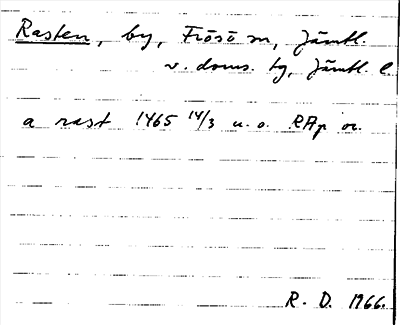 Rasten, by, Frösö sn, Jämtl.
v. doms. tg, Jämtl. l.
a rast 1465 14/3 u. o. RAp or.
R. D. 1966.